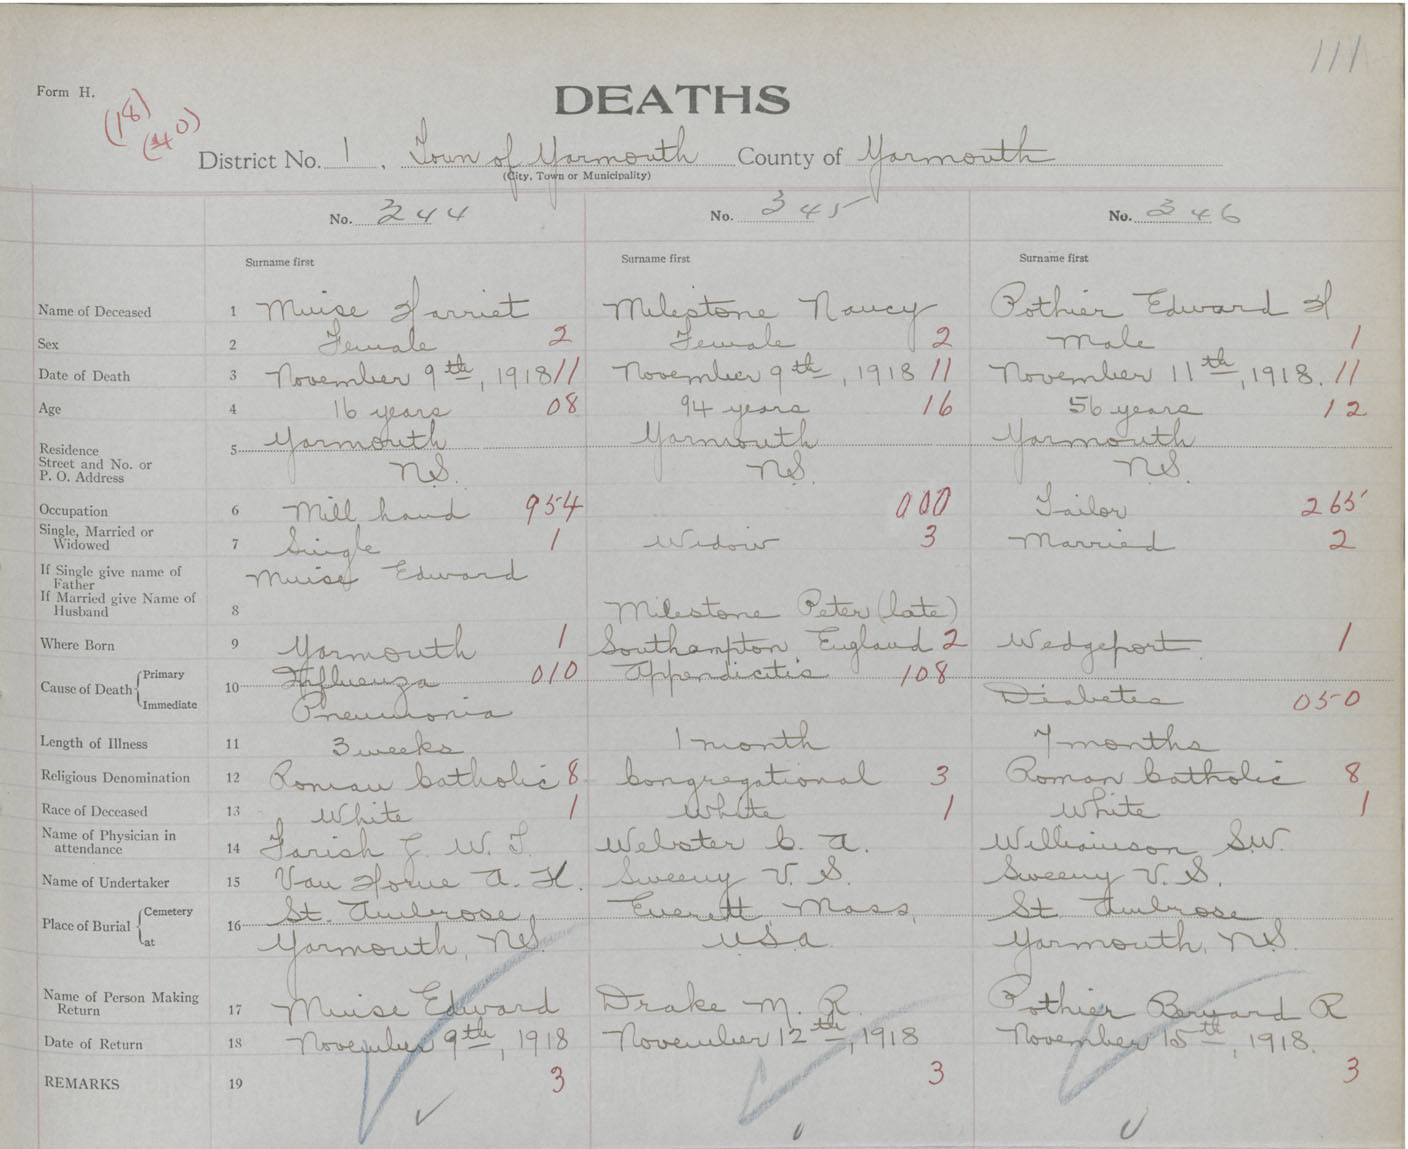 111
Form H.
(18)
(40)
DEATHS
District No. 1, Town of Yarmouth County of Yarmouth
(City, Town or Municipality)
No. 344 No. 345 No. 346
Surname first Surname first Surname first
Name of Deceased 1 Muise Harriet Milestone Nancy Pothier Edward H
Sex 2 Female 2 Female 2 Male 1
Date of Death 3 November 9th, 1918 11 November 9th, 1918 11 November 11th, 1918. 11
Age 4 16 years 08 94 years 16 56 years 12
Residence Street and No. or P. O. Address 5 Yarmouth Yarmouth Yarmouth
N.S. N.S. N.S.
Occupation 6 Mill hand 954 000 Tailor 265
Single, Married or Widowed 7 Single 1 Widow 3 Married 2
If Single give name of Father Muise Edward
If Married give Name of Husband 8 Milestone Peter (late)
Where Born 9 Yarmouth 1 Southampton England 2 Wedgeport 1
Cause of Death { Primary 10 Influenza 010 Appendicitis 108
Immediate Pneumonia Diabetes 050
Length of Illness 11 3 weeks 1 month 7 months
Religious Denomination 12 Roman Catholic 8 Congregational 3 Roman Catholic 8
Race of Deceased 13 White 1 White 1 White 1
Name of Physician in attendance 14 Farish G. W. T. Webster C. A. Williamson S.W.
Name of Undertaker 15 Van Horne A. H. Sweeny V. S. Sweeny V. S.
Place of Burial { Cemetery 16 St. Ambrose Everett, Mass, St Ambrose
at Yarmouth, N.S. U.S.a. Yarmouth, N.S.
Name of Person Making Return 17 Muise Edward Drake M. R. Pothier R
Date of Return 18 November 9th, 1918 November 12th, 1918 November 15th, 1918.
REMARKS 19 3 3 3